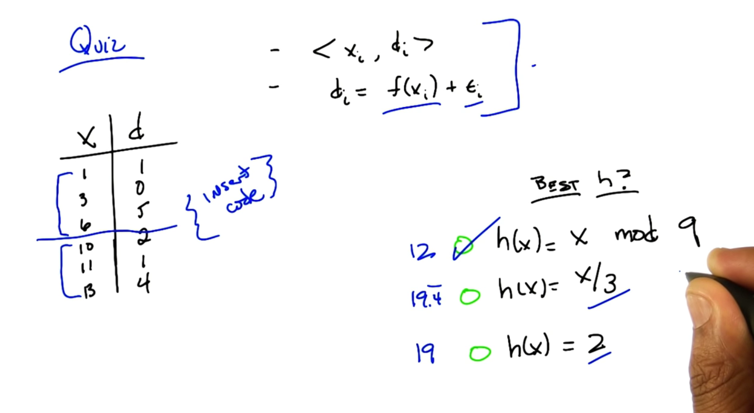 Quiz
- < xᵢ , dᵢ >
- dᵢ = f(xᵢ) + εᵢ
x d
1 1
3 0
6 5
10 2
11 1
13 4
{ insert code }
BEST h?
12 h(x) = x mod 9
19.4̄ h(x) = x/3
19 h(x) = 2